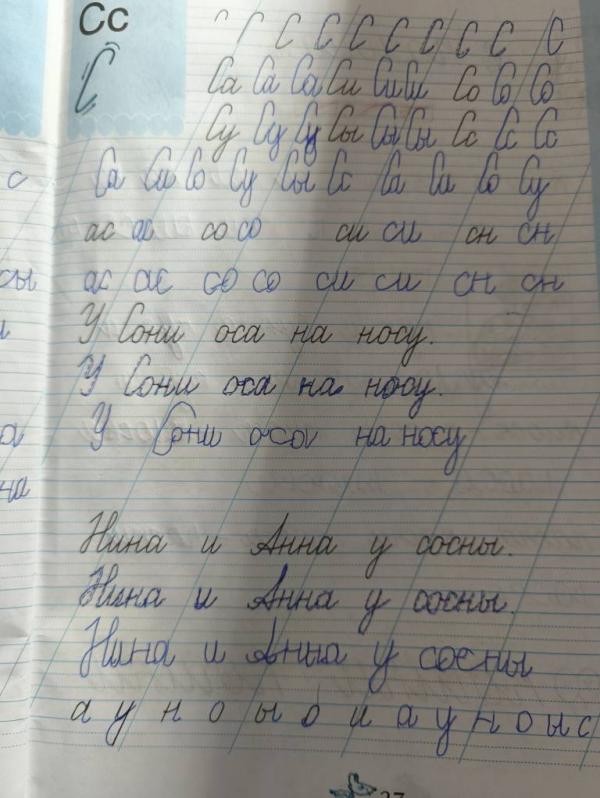 Сс
С С С С С С С С С С
С
Са Са Са Си Си Си Со Со Со
с
Су Су Су Сы Сы Сы Сс Сс Сс
Са Си Со Су Сы Сс Са Си Со Су
ас ас со со си си сн сн
сы ас ас со со си си сн сн
У Сони оса на носу.
У Сони оса на носу.
а У Сони оса на носу
на
Нина и Анна у сосны.
Нина и Анна у сосны.
Нина и Анна у сосны
а у н о ы о и а у н о ы с
37